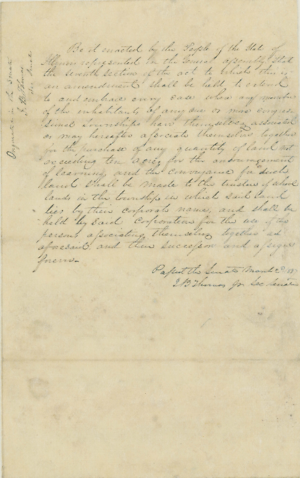 Be it enacted by the People of the State of
Illinois represented in the General Assembly That
the seventh section of the act to which this is
an amendment shall be held to extend
to and embrace every case where any number
of the inhabitants of any one or more Congres-
sional townships have themselves, associated
or may hereafter associate themselves together
in the purchase of any quantity of land not
exceeding ten acres for the encouragement
of learning and the conveyance for such
land shall be made to the trustees of school
lands in the township in which said land
lies by their corporate name, and shall be
held by said Corporation for the use of the
persons associating themselves together as
aforesaid and their successors and assigns
forever.
Passed the Senate March 2d
J. B. Thomas for Sec. Senate
Engrossed in the Senate
J. B. Thomas